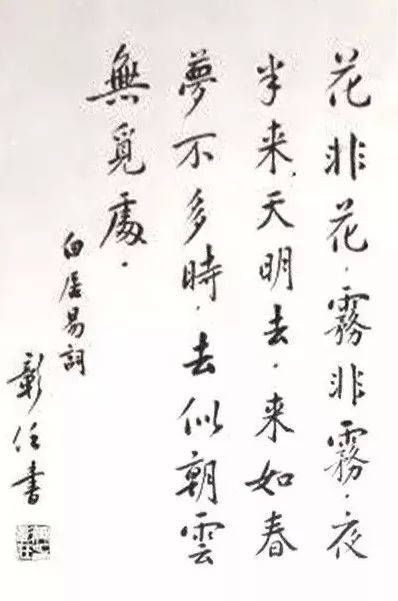 花非花.霧非霧.夜
半来.天明去.来如春
夢不多時.去似朝雲
無覓處.
白居易詞
彰任書